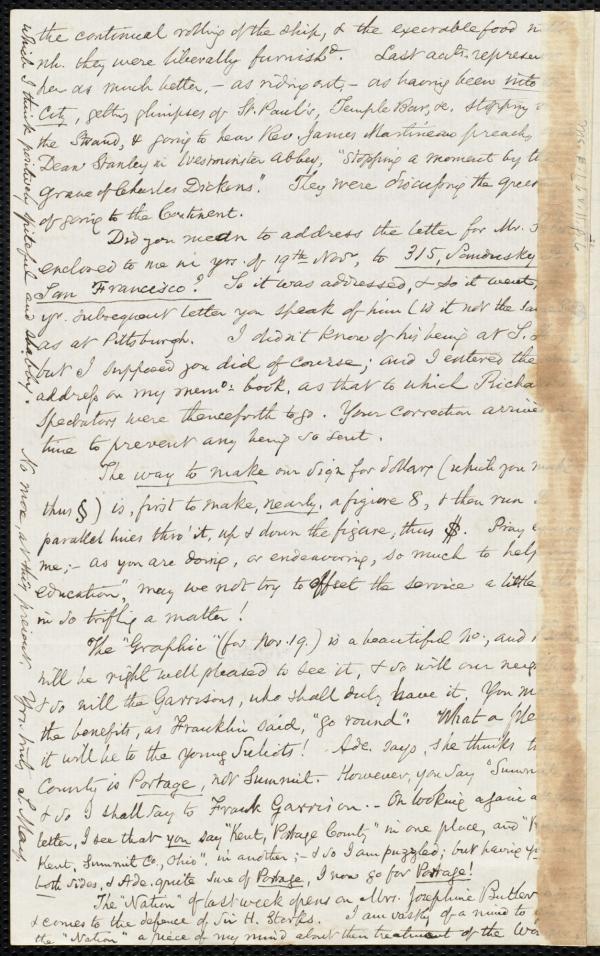 the continual rolling of the ship, & the execrable food
wh. they were liberally furnishd. Last acts. represen
her as much better, - as riding out, - as having been into
City, getting glimpses of St. Paul's, Temple Bar, &c. stopping
the Strand, & going to hear Rev. James Martineau preach,
Dean Stanley in Westminster Abbey, "stopping a moment by
grave of Charles Dickens". They were discussing the
of going to the Continent.
Did you mean to address the letter for Mr.
enclosed to me in yrs. of 19th Novr. to 315, Sandusky
San Francisco? So it was addressed, & so it went,
yr. subsequent letter you speak of him (is it not the
as at Pittsburgh. I didn't know of his being at S.
but I supposed you did of course; and I entered the
address on my memo: book, as that to which Richa
Spectators were thenceforth to go. Your correction arrive
time to prevent any being so sent.
The way to make our sign for dollars (which you
thus §) is, first to make, nearly, a figure 8, & then run
parallel lines thro' it, up & down the figure, thus $. Pray
me; - as you are doing, or endeavoring, so much to help
education", may we not try to offset the service a little
in so trifling a matter!
The "Graphic" (for Nov. 19.) is a beautiful No., and
will be right well pleased to see it, & so will our neig
& so will the Garrisons, who shall duly have it. You
the benefits, as Franklin said, "go round". What a
it will be to the young Suliots! Ade. says, she thinks
County is Portage, not Summit. However, you say "Summ
& so I shall say to Frank Garrison. - On looking again
letter, I see that you say "Kent, Portage County" in one place, and
Kent, Summit Co., Ohio", in another; - & so I am puzzled; but having
both sides, & Ade. quite sure of Portage, I now go for Portage!
The "Nation" of last week opens on Mrs. Josephine Butler
& comes to the defence of Sir H. Storks. I am vastly of a mind to
the "Nation" a piece of my mind about their treatment of the
which I think positively spiteful and shabby. No more, at this present. Yrs. truly S. May